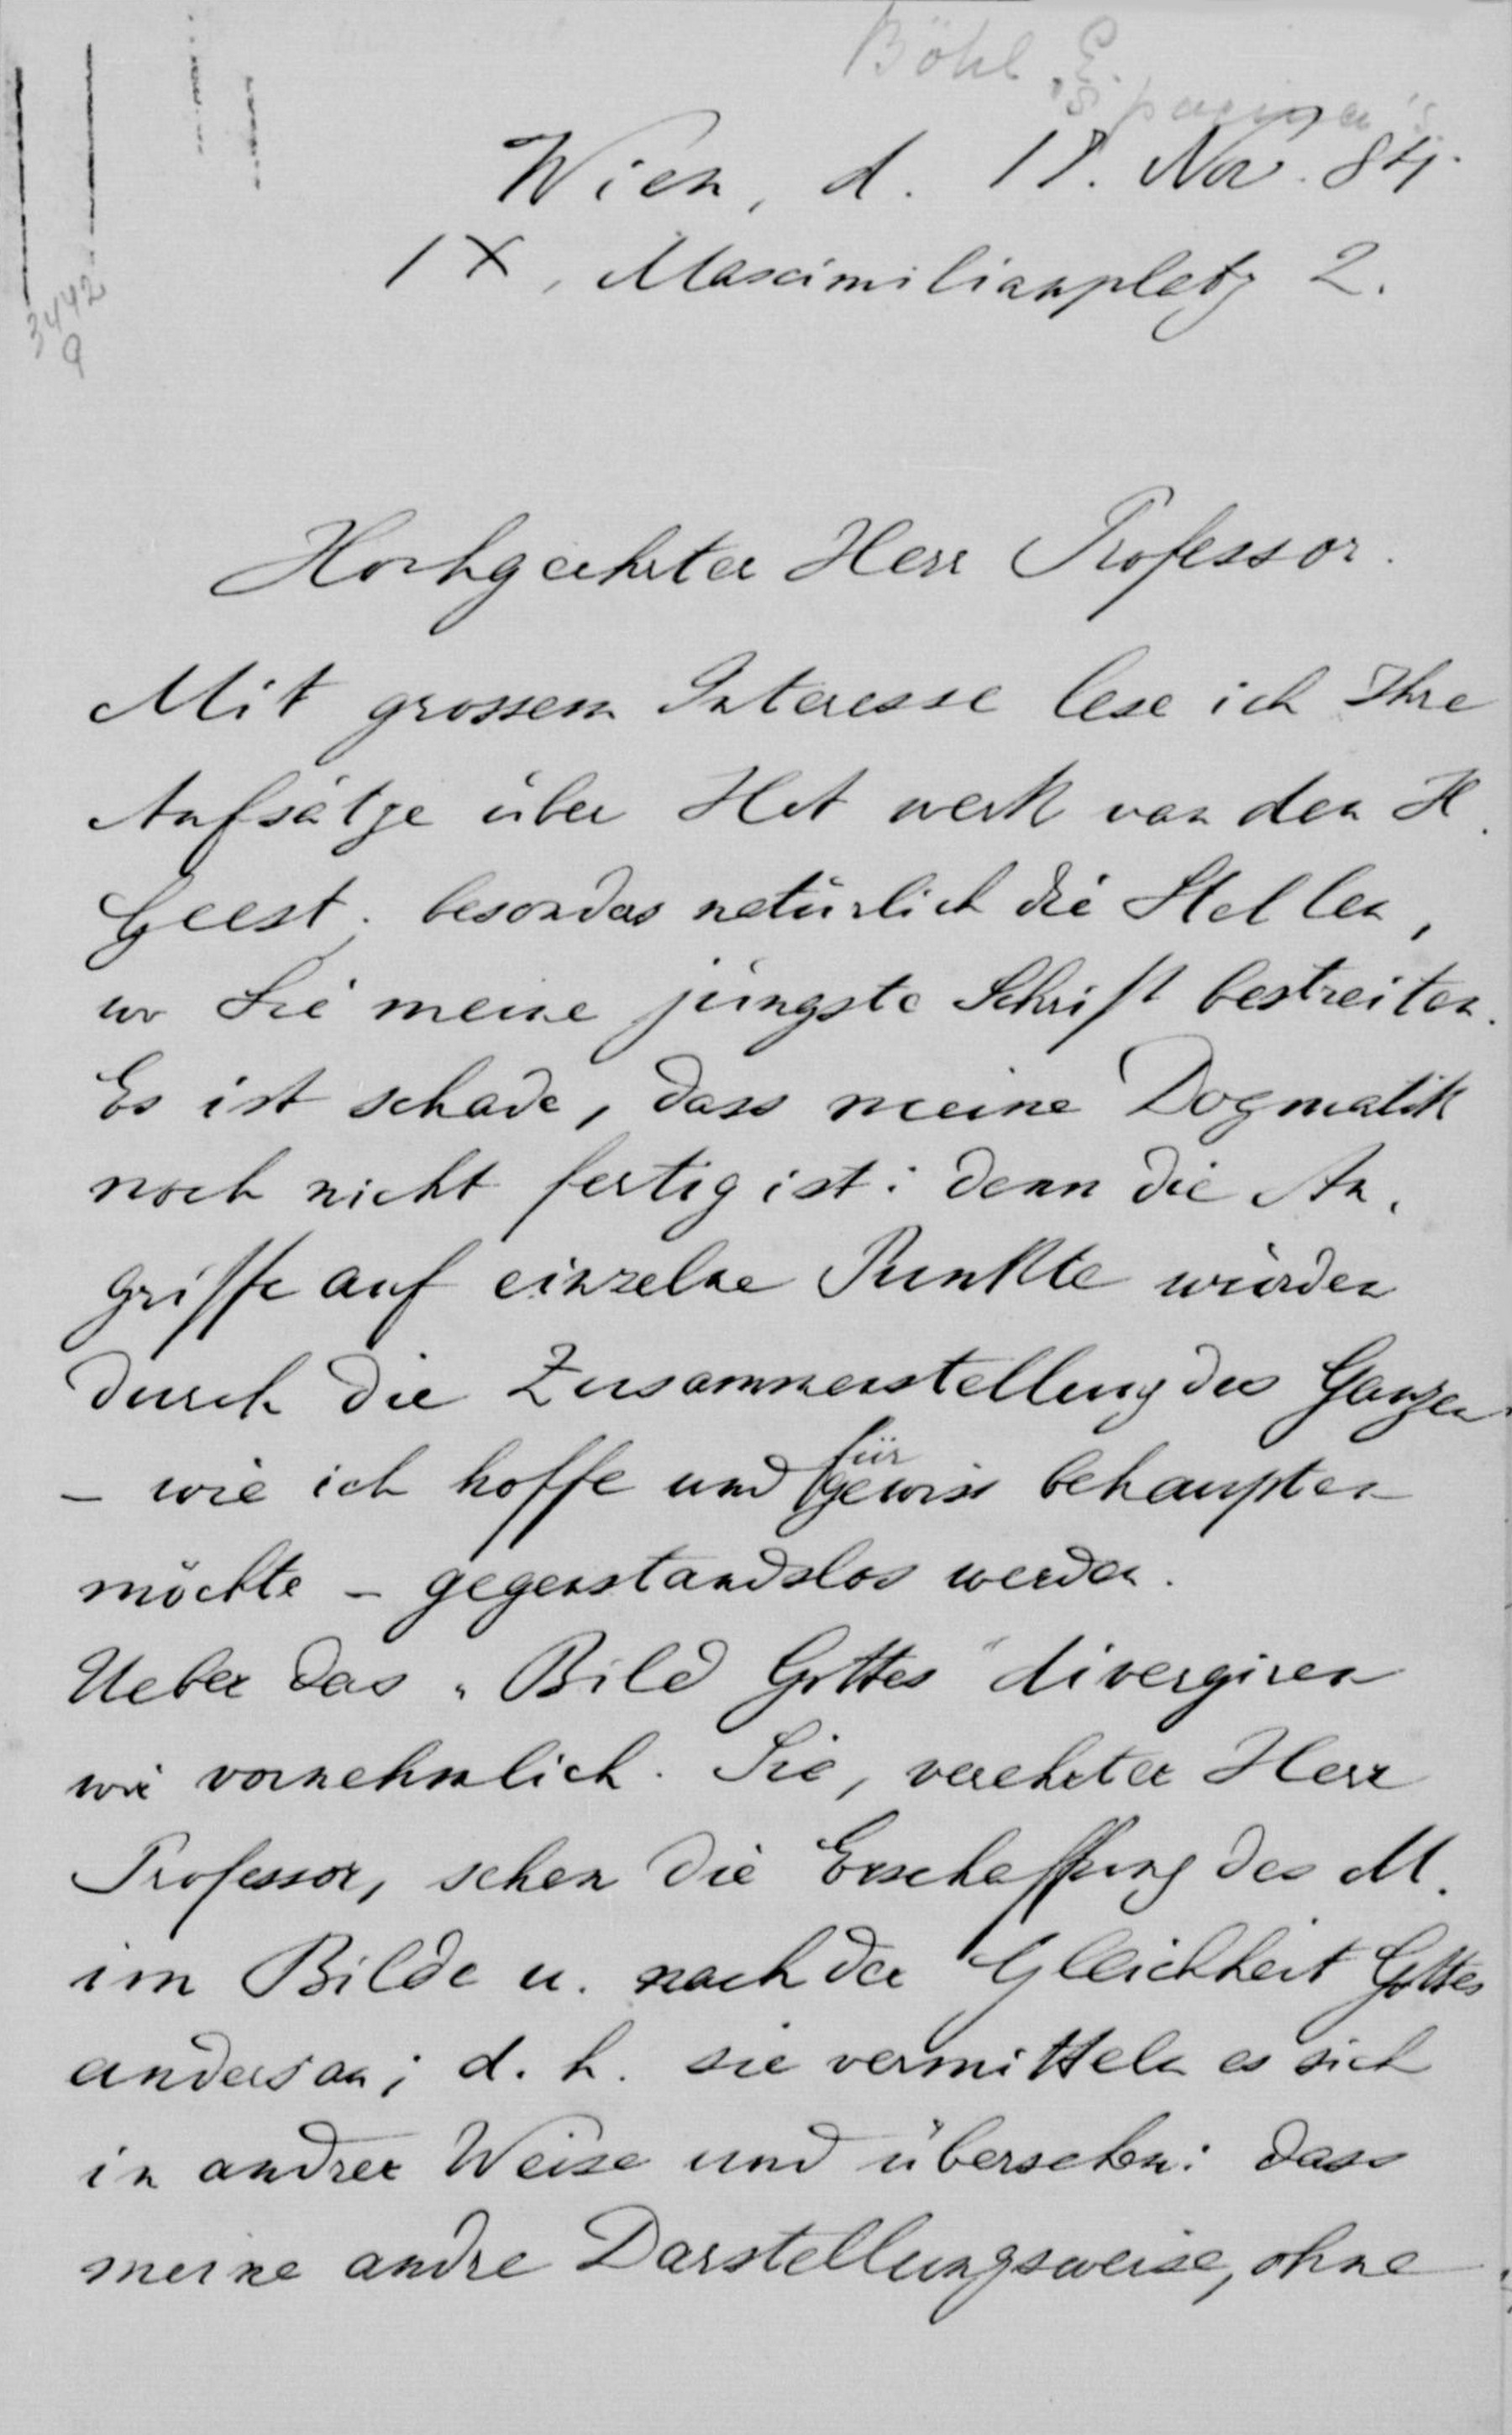 Böhl, E.
Wien, d. 18. Nov. 84.
IX, Maximilianplatz 2.
3442
9
Hochgeehrter Herr Professor.
Mit grossem Interesse lese ich Ihre
Aufsätze über Het werk van den H.
Geest; besonders natürlich die Stellen,
wo Sie meine jüngste Schrift bestreiten.
Es ist schade, dass meine Dogmatik
noch nicht fertig ist: denn die An-
griffe auf einzelne Punkte würden
durch die Zusammenstellung des Ganzen
– wie ich hoffe und für gewiss behaupten
möchte – gegenstandslos werden.
Ueber das „Bild Gottes" divergiren
wir vornehmlich. Sie, verehrter Herr
Professor, sehen die Erschaffung des M.
im Bilde u. nach der Gleichheit Gottes
anders an; d. h. sie vermitteln es sich
in andrer Weise und übersehen: dass
meine andre Darstellungsweise, ohne